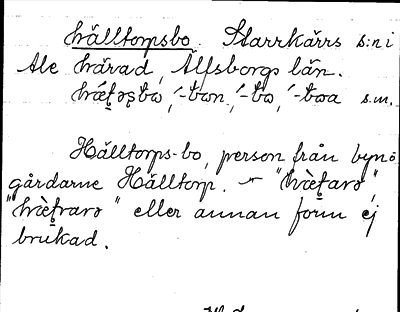 hälltorpsbo. Starrkärrs s:n i
Ale härad, Älfsborgs län.
hæ̀ʈəʂbo, ´-bon, ´-bo, ´-boa s.m.
Hälltorps-bo, person från bynö
gårdarne Hälltorp. — "hæ̀ʈarə",
"hæ̀ʈrarə" eller annan form ej
brukad.